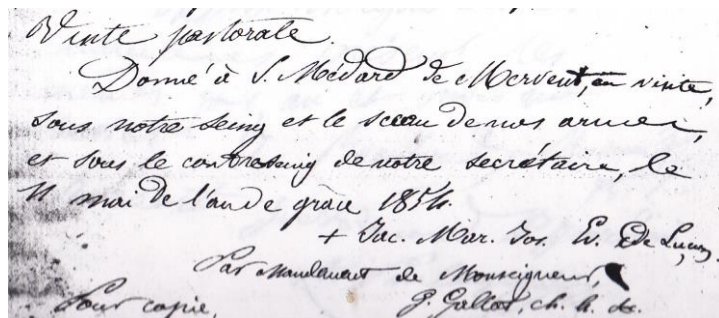 Visite pastorale.
Donné à S. Médard de Mervent, en visite,
sous notre seing et le sceau de nos armes,
et sous le contreseing de notre secrétaire, le
11 mai de l'an de grâce 1854.
+ Jac. Mar. Jos. Ev. de Luçon.
Par Mandement de Monseigneur,
Pour copie, G. Gallot, ch. h.